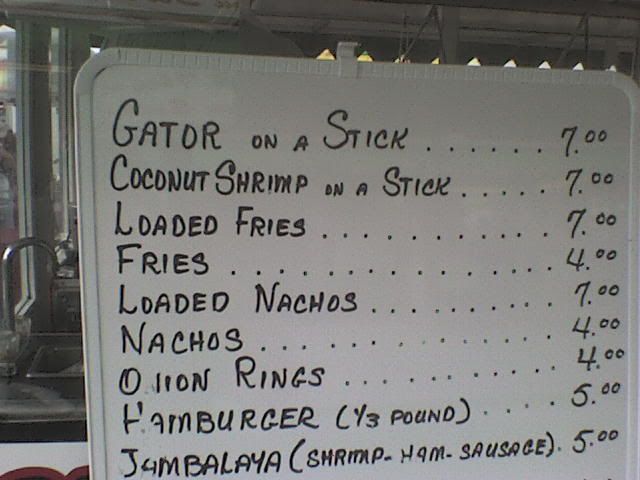 GATOR ON A STICK . . . . . . 7.00
COCONUT SHRIMP ON A STICK . . . . . 7.00
LOADED FRIES . . . . . . . . . . . 7.00
FRIES . . . . . . . . . . . . . . . 4.00
LOADED NACHOS . . . . . . . . . . 7.00
NACHOS . . . . . . . . . . . . . 4.00
ONION RINGS . . . . . . . . . . 4.00
HAMBURGER (1/3 POUND) . . . . 5.00
JAMBALAYA (SHRIMP-HAM-SAUSAGE). 5.00